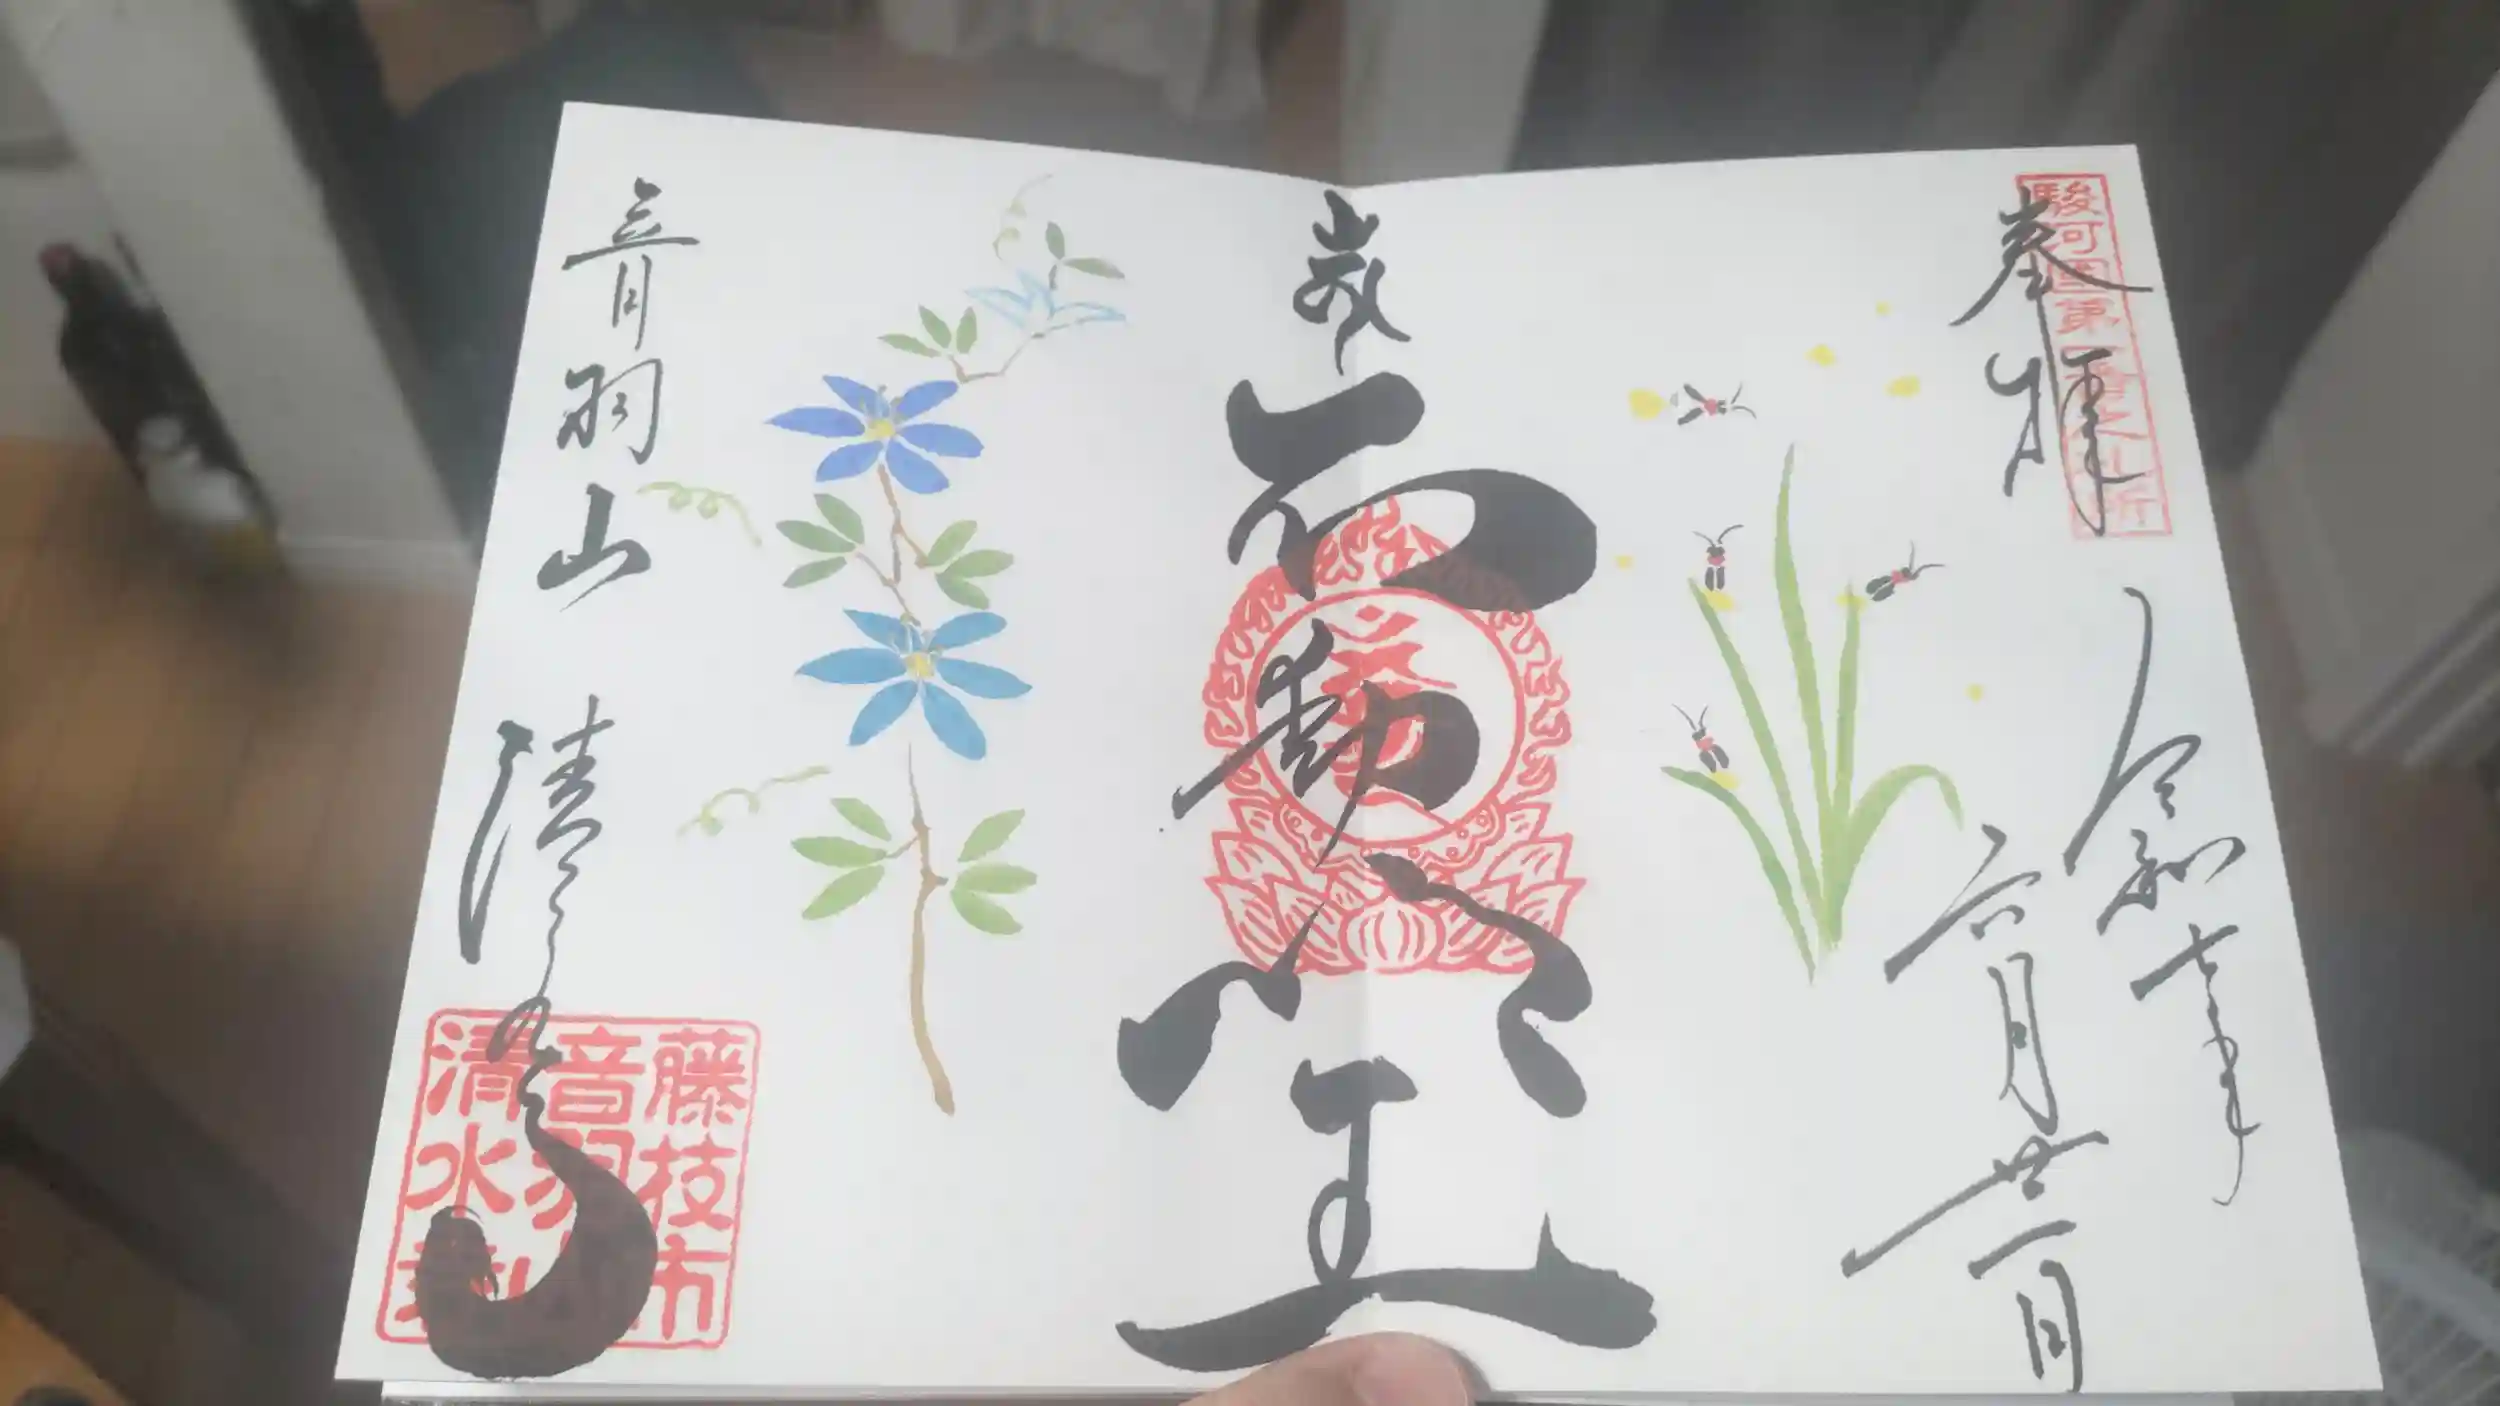 駿河国第一番之札所
奉拝
令和七年
六月廿一日
不動
音羽山 清水寺
藤枝市
音羽山
清水寺